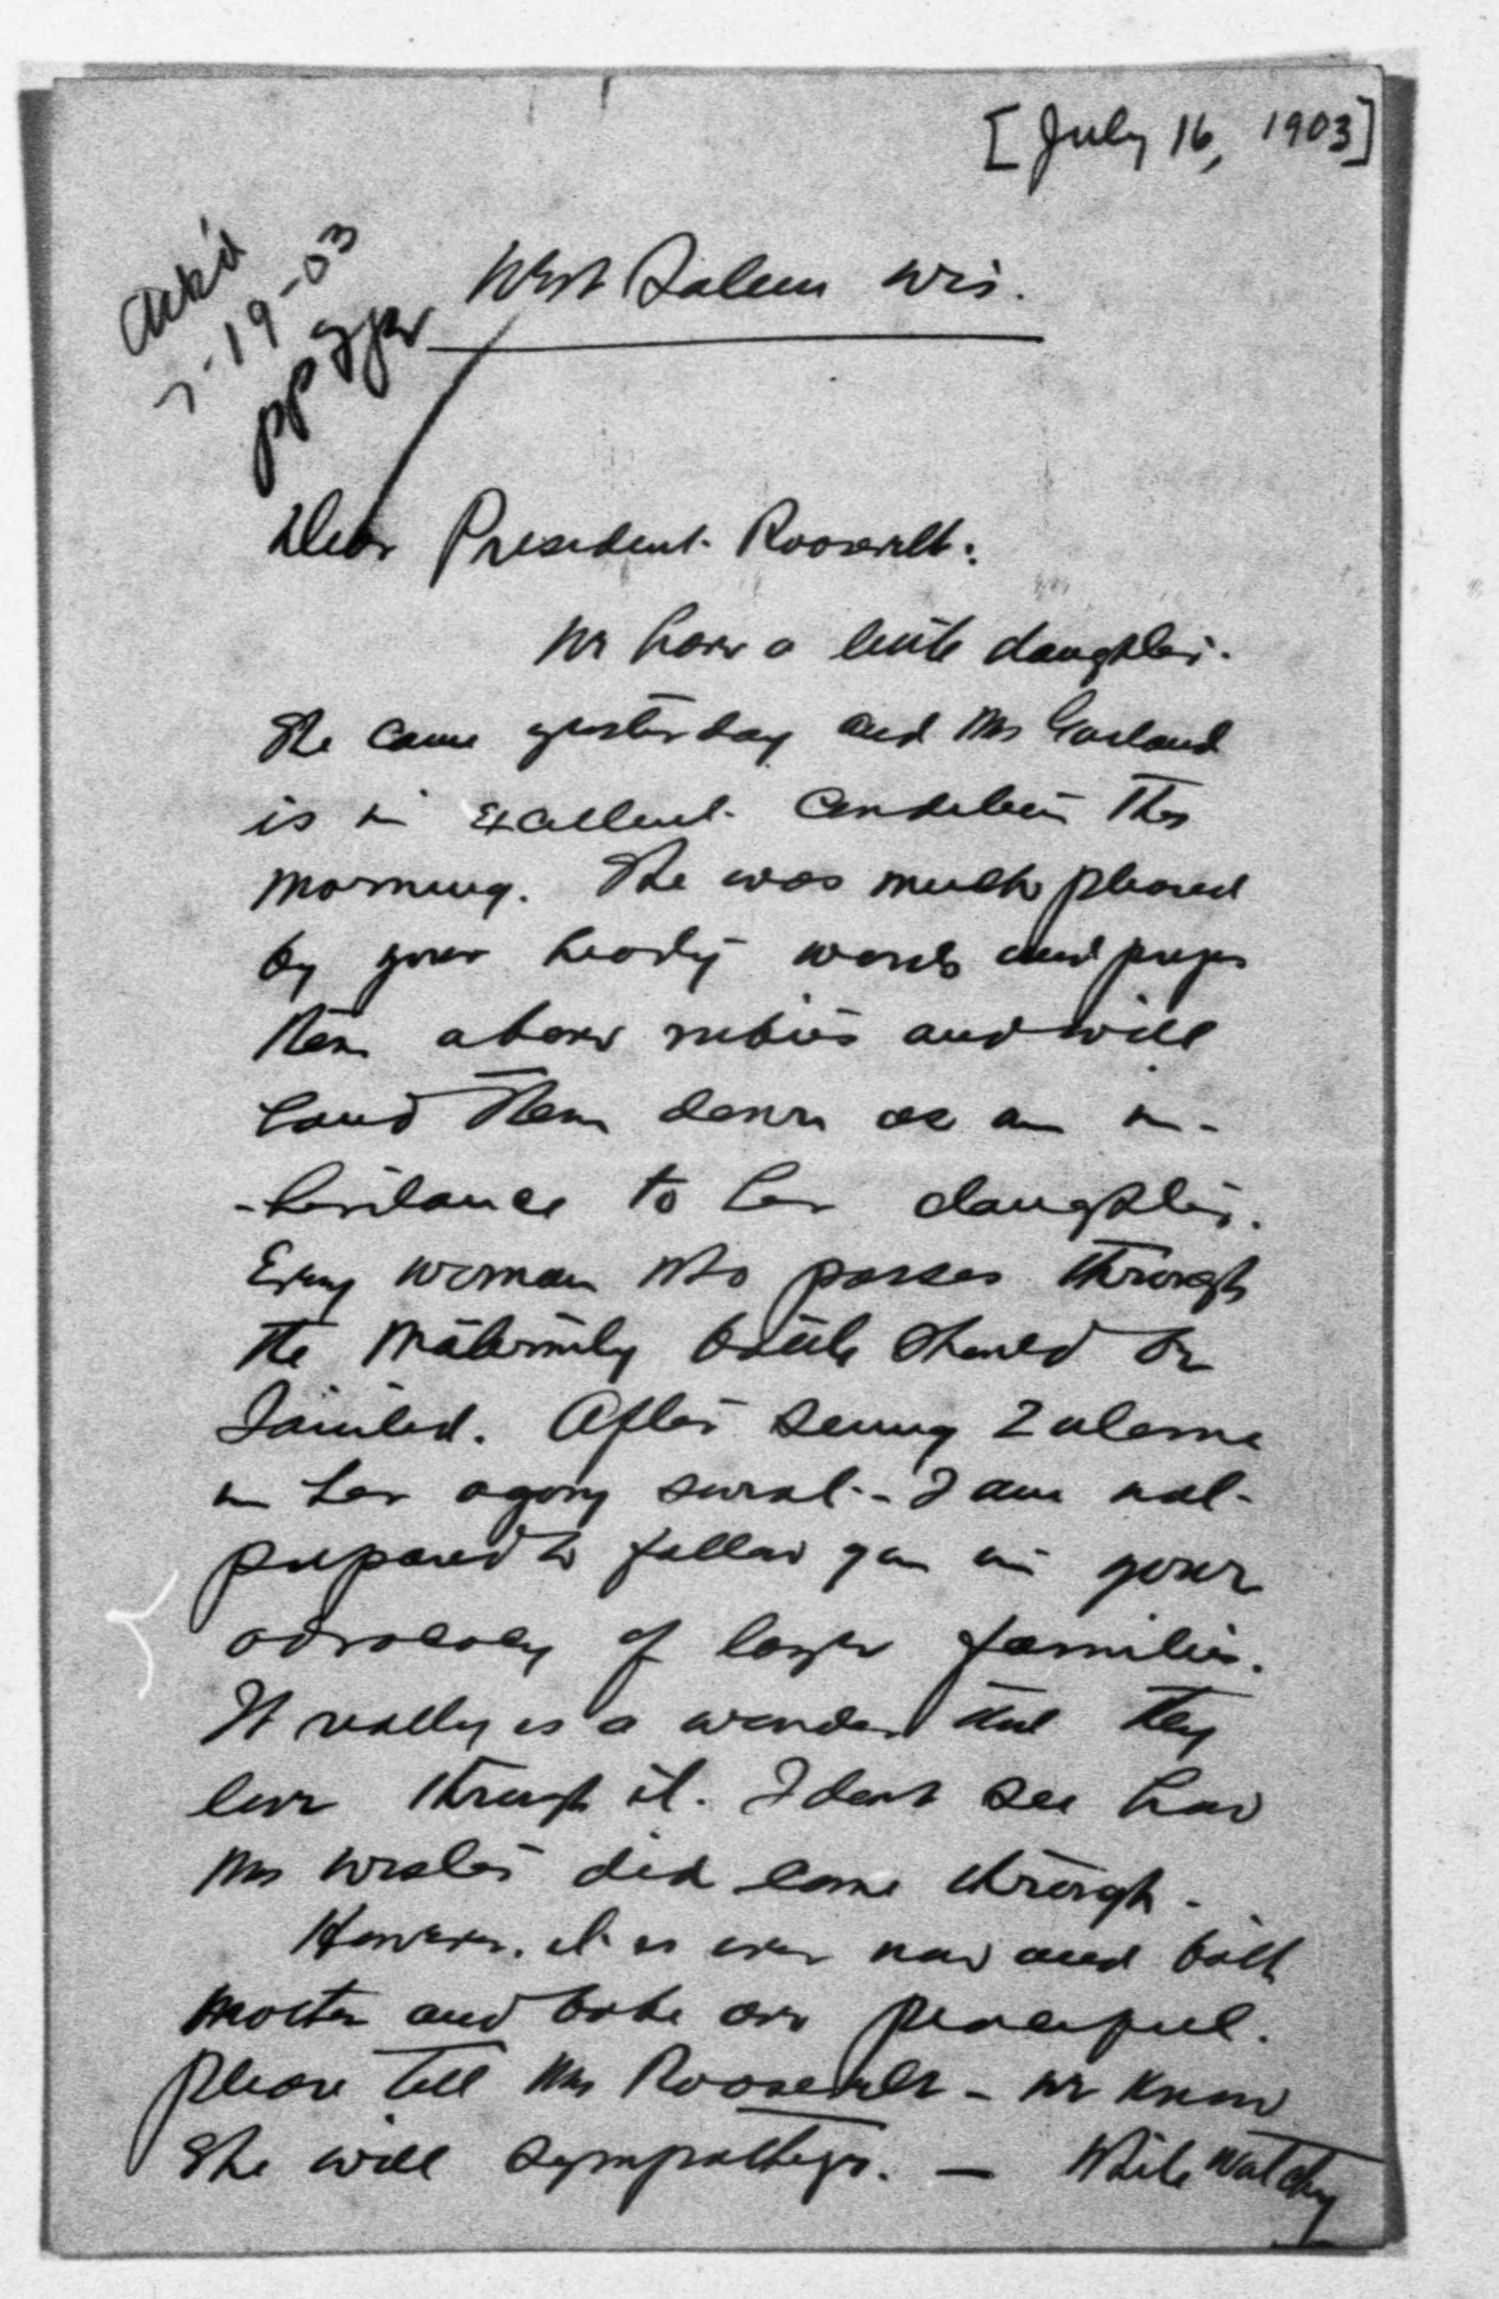 [July 16, 1903]
Ack'd
7-19-03
West Salem Wis.
Dear President Roosevelt:
We have a little daughter.
She came yesterday and Mrs Garland
is in excellent condition this
morning. She was much pleased
by your hearty words and prizes
them above rubies and will
hand them down as an in-
-heritance to her daughter.
Every woman who passes through
the maternity battle should be
Sainted. After seeing Zulema
in her agony sweat - I am not
prepared to follow you in your
advocacy of large families.
It really is a wonder that they
live through it. I dont see how
Mrs did come through.
However, it is over now and both
mother and babe are peaceful.
Please tell Mrs Roosevelt - we know
she will sympathize. — While watching